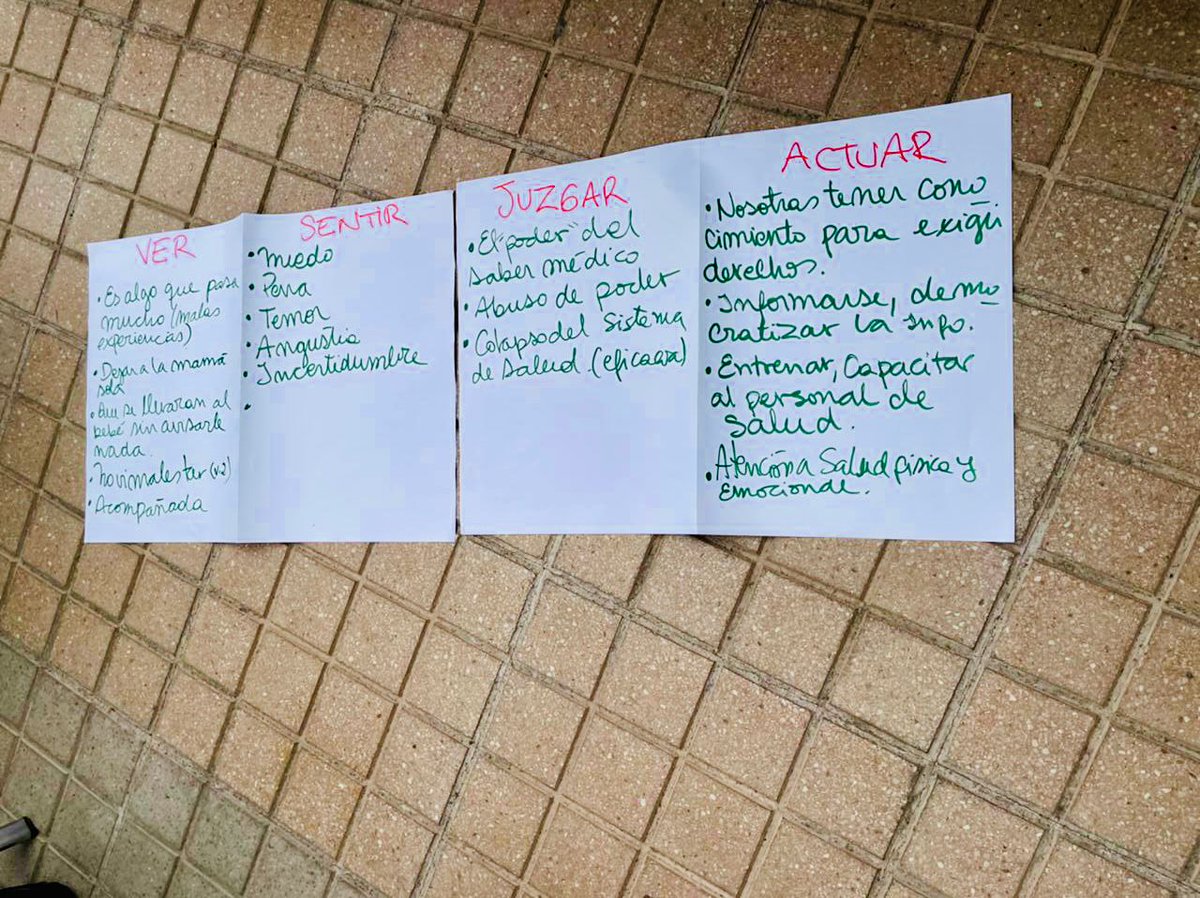 VER
• Es algo que pasa
mucho (malas
experiencias)
• Dejar a la mamá
sola
• Que se llevaran al
bebé sin avisarle
nada.
(v2)
• Acompañada
SENTIR
• Miedo
• Pena
• Temor
• Angustia
• Incertidumbre
•
JUZGAR
• El "poder" del
saber médico
• Abuso de poder
• Colapso del Sistema
de Salud. (eficacia)
ACTUAR
• Nosotras tener cono
cimiento para exigir
derechos.
• Informarse, demo
cratizar la info.
• Entrenar, Capacitar
al personal de
Salud.
• Atención a Salud física y
Emocional.